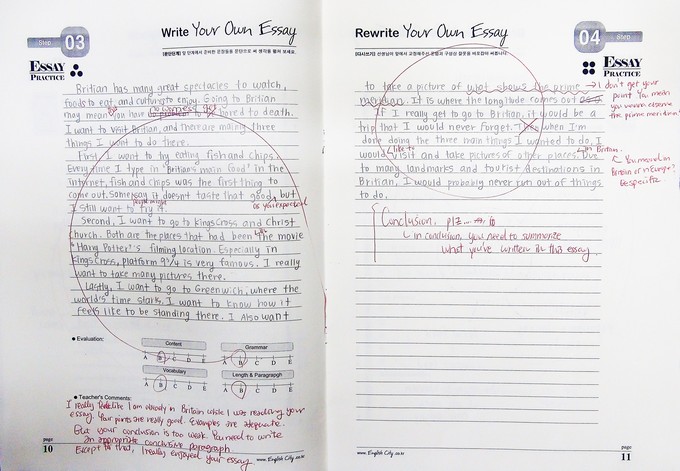 Step 03
Write Your Own Essay
ESSAY
PRACTICE
Britian has many great spectacles to watch,
foods to eat, and culture to enjoy. Going to Britian
may mean you have no worries bored to death.
I want to visit Britian, and there are mainly three
things I want to do there.
First, I want to try eating fish and chips.
Every time I type in Britian's main food in the
internet, fish and chips was the first thing to
come out. Some say it doesn't taste that good, but
as you expected
I still want to try it.
Second, I want to go to Kings Cross and Christ
Church. Both are the places that had been the movie
"Harry Potter"'s filming location. Especially in
Kings Cross, platform 9¾ is very famous. I really
want to take many pictures there.
Lastly, I want to go to Greenwich, where the
world's time starts. I want to know how it
feels like to be standing there. I also want
● Evaluation:
Content
A B C D E
Grammar
A B C D E
Vocabulary
A B C D E
Length & Paragrapgh
A B C D E
● Teacher's Comments:
I really feel like I am already in Britain while I was reading your
essay. Your points are really good. Examples are
But your conclusion is too weak. You need to write
an appropriate conclusive paragraph.
Except to that, I really enjoyed your essay.
page
10
www.EnglishCity.co.kr
Rewrite Your Own Essay
Step 04
ESSAY
PRACTICE
to take a picture of what shows the prime
meridian. It is where the longitude comes out
If I really get to go to Britian, it would be a
trip that I would never forget. when I'm
done doing the three main things I wanted to do, I
would like to visit and take pictures of other places. Due
in Britain.
to many landmarks and tourist destinations in
Britian, I would probably never run out of things
to do.
→ I don't get your
point. You mean
you wanna observe
the prime meridian?
You mean in
Britain or in Europe?
Be specific
Conclusion, plz...
in conclusion, you need to summarize
what you've written in this essay.
www.EnglishCity.co.kr
page
11